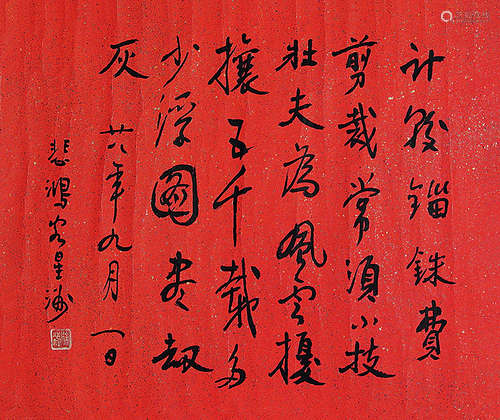 计较锱铢费
剪裁常须小技
壮夫为风云扰
攘五千载多
少浮图尽劫
灰 廿八年九月一日
悲鸿客星洲